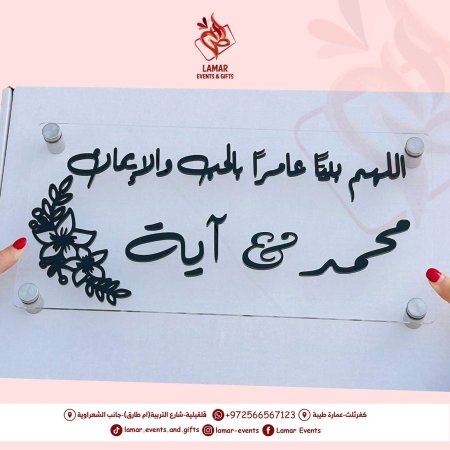 LAMAR
EVENTS & GIFTS
اللهم بيتاً عامراً بالحب والإيمان
محمد & آية
كفرثلث-عمارة طيبة
+972566567123
قلقيلية-شارع التربية(ام طارق)-جانب الشعراوية
lamar.events.and.gifts
lamar-events
Lamar Events